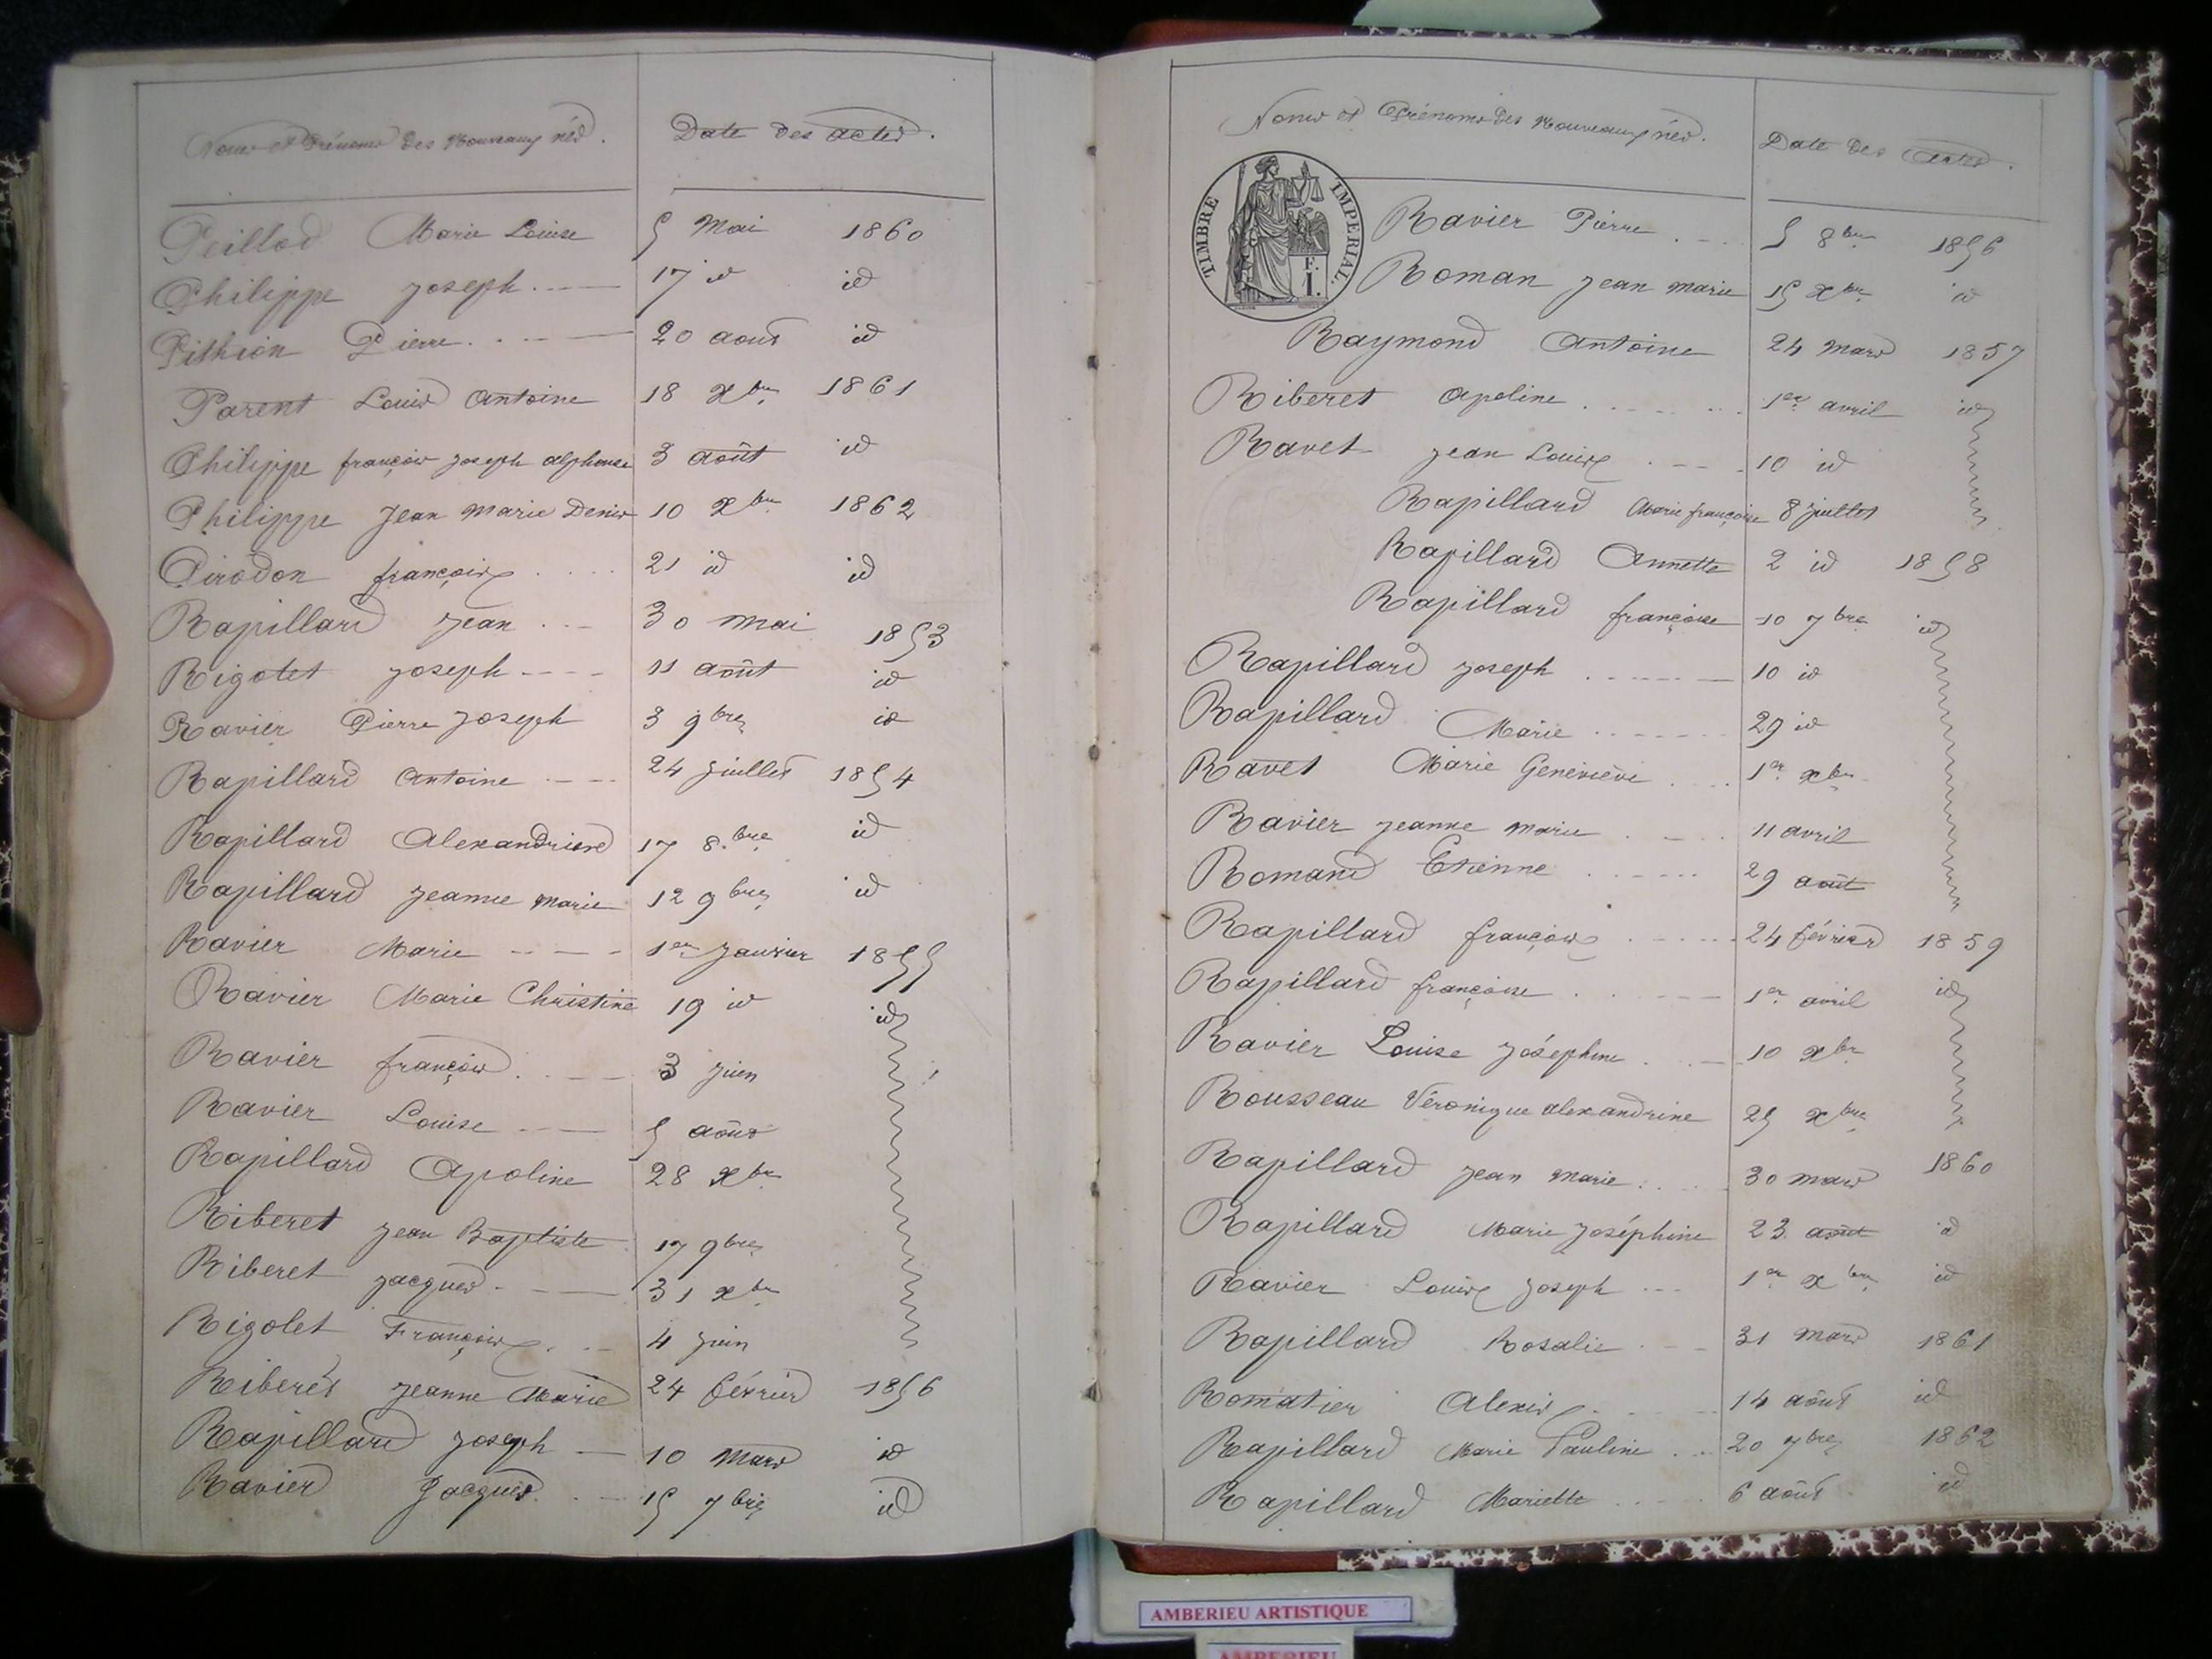 Noms et Prénoms des Nouveaux nés. Date des actes.
Peillod Marie Louise 5 Mai 1860
Philippe Joseph 17 id id
Pithion Pierre 20 aout id
Parent Louis Antoine 18 Xbre 1861
Philippe françois Joseph alphonse 3 août id
Philippe Jean Marie Denis 10 Xbre 1862
Pirodon françois 21 id id
Rapillard Jean 30 mai 1853
Rigotet Joseph 11 août id
Ravier Pierre Joseph 3 9bre id
Rapillard Antoine 24 juillet 1854
Rapillard Alexandrine 17 8bre id
Rapillard Jeanne Marie 12 9bre id
Ravier Marie 1er Janvier 1855
Ravier Marie Christine 19 id id
Ravier françois 3 juin
Ravier Louise 5 août
Rapillard Apoline 28 Xbre
Riberet Jean Baptiste 17 9bre
Riberet Jacques 31 Xbre
Rigolet François 4 juin
Riberet Jeanne Marie 24 février 1856
Rapillard Joseph 10 Mars id
Ravier Jacques 15 7bre id
Noms et Prénoms des Nouveaux nés. Date des actes.
TIMBRE IMPERIAL.
F.
1.
Ravier Pierre 5 8bre 1856
Roman Jean Marie 15 Xbre id
Raymond Antoine 24 Mars 1857
Riberet Apoline 1er avril id
Ravet Jean Louis 10 id
Rapillard Marie françoise 8 juillet
Rapillard Annette 2 id 1858
Rapillard françoise 10 7bre id
Rapillard Joseph 10 id
Rapillard Marie 29 id
Ravet Marie Geneviève 1er Xbre
Ravier Jeanne Marie 11 avril
Romand Etienne 29 août
Rapillard françois 24 février 1859
Rapillard françoise 1er avril id
Ravier Louise Joséphine 10 Xbre
Rousseau Véronique alexandrine 25 Xbre
Rapillard Jean Marie 30 mars 1860
Rapillard Marie Joséphine 23 août id
Ravier Louis Joseph 1er Xbre id
Rapillard Rosalie 31 Mars 1861
Romatier Alexis 14 août id
Rapillard Marie Pauline 20 7bre 1862
Rapillard Mariette 6 août id
AMBERIEU ARTISTIQUE
AMBERIEU